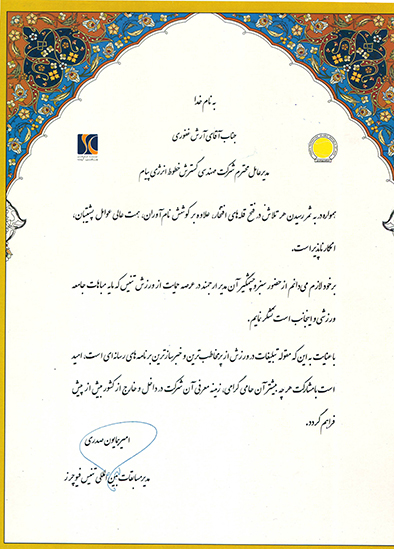 به نام خدا
جناب آقای آرش غفوری
مدیرعامل محترم شرکت مهندسی گسترش خطوط انرژی پیام
همواره در به ثمر رسیدن هر تلاش در فتح قله‌های افتخار، علاوه بر کوشش نام‌آوران، همت عالی عوامل پشتیبان،
انکار ناپذیر است.
بر خود لازم می‌دانم از حضور سبز و چشمگیر آن مدیر ارجمند در عرصه حمایت از ورزش تنیس که مایه مباهات جامعه
ورزشی و اینجانب است تشکر نمایم.
با عنایت به این که مقوله تبلیغات در ورزش از پرمخاطب‌ترین و خبرسازترین برنامه‌های رسانه‌ای است، امید
است با مشارکت هر چه بیشتر آن حامی گرامی، زمینه معرفی آن شرکت در داخل و خارج از کشور بیش از پیش
فراهم گردد.
امیرهمایون صدری
مدیر مسابقات بین المللی تنیس فیوچرز